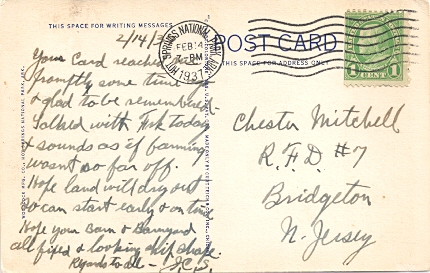 THIS SPACE FOR WRITING MESSAGES
2/14/3
Your Card reached
promptly some time
& glad to be remembered.
Talked with Fsk today
& sounds as if farming
wasnt so far off.
Hope land will dry out
so can start early & on time
Hope your Barn & Barnyard
all fixed & looking ship shape.
Regards to all — J.C.S.
HOT SPRINGS NATIONAL PARK, ARK.
FEB 14
7 PM
1931
POST CARD
THIS SPACE FOR ADDRESS ONLY
1 CENT 1
Chester Mitchell
R.F.D. #7
Bridgeton
N. Jersey